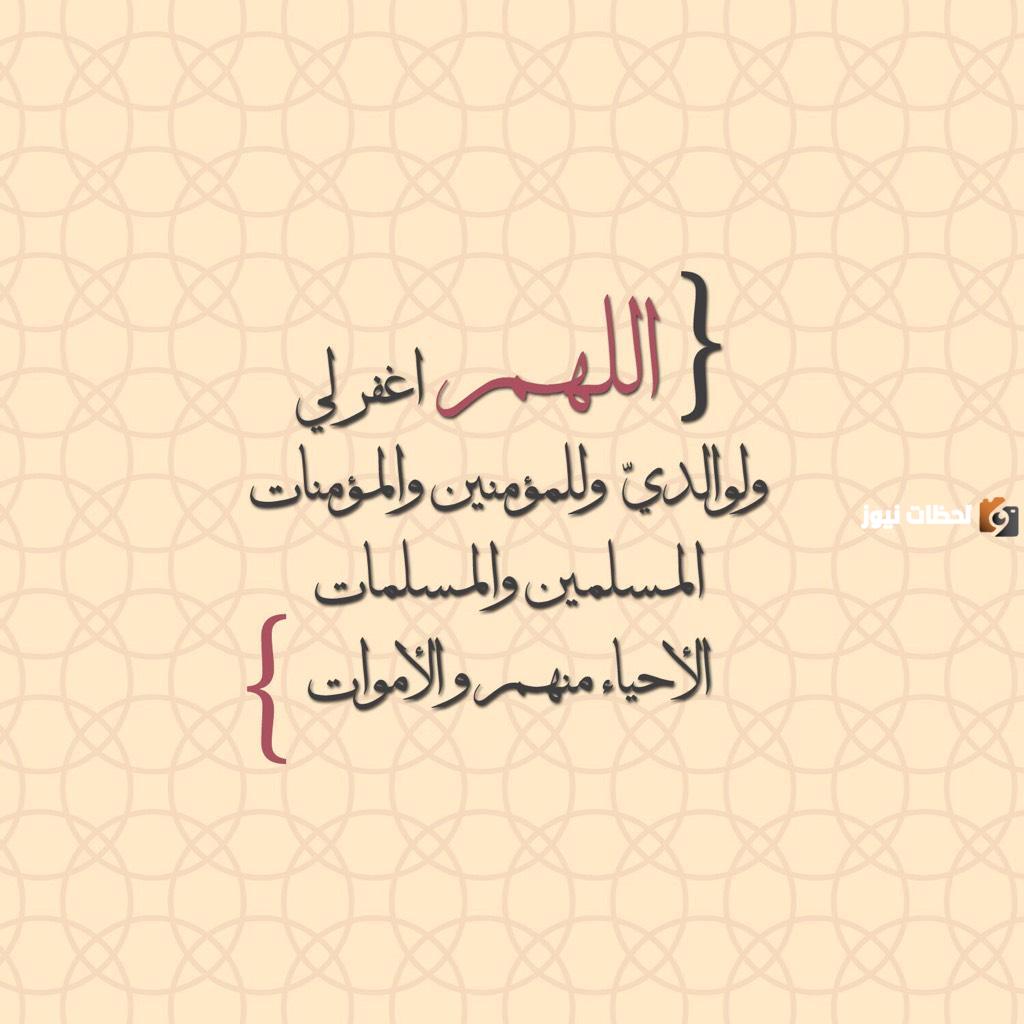 { اللهم اغفر لي
ولوالديّ وللمؤمنين والمؤمنات
المسلمين والمسلمات
الأحياء منهم والأموات }
لحظات نيوز